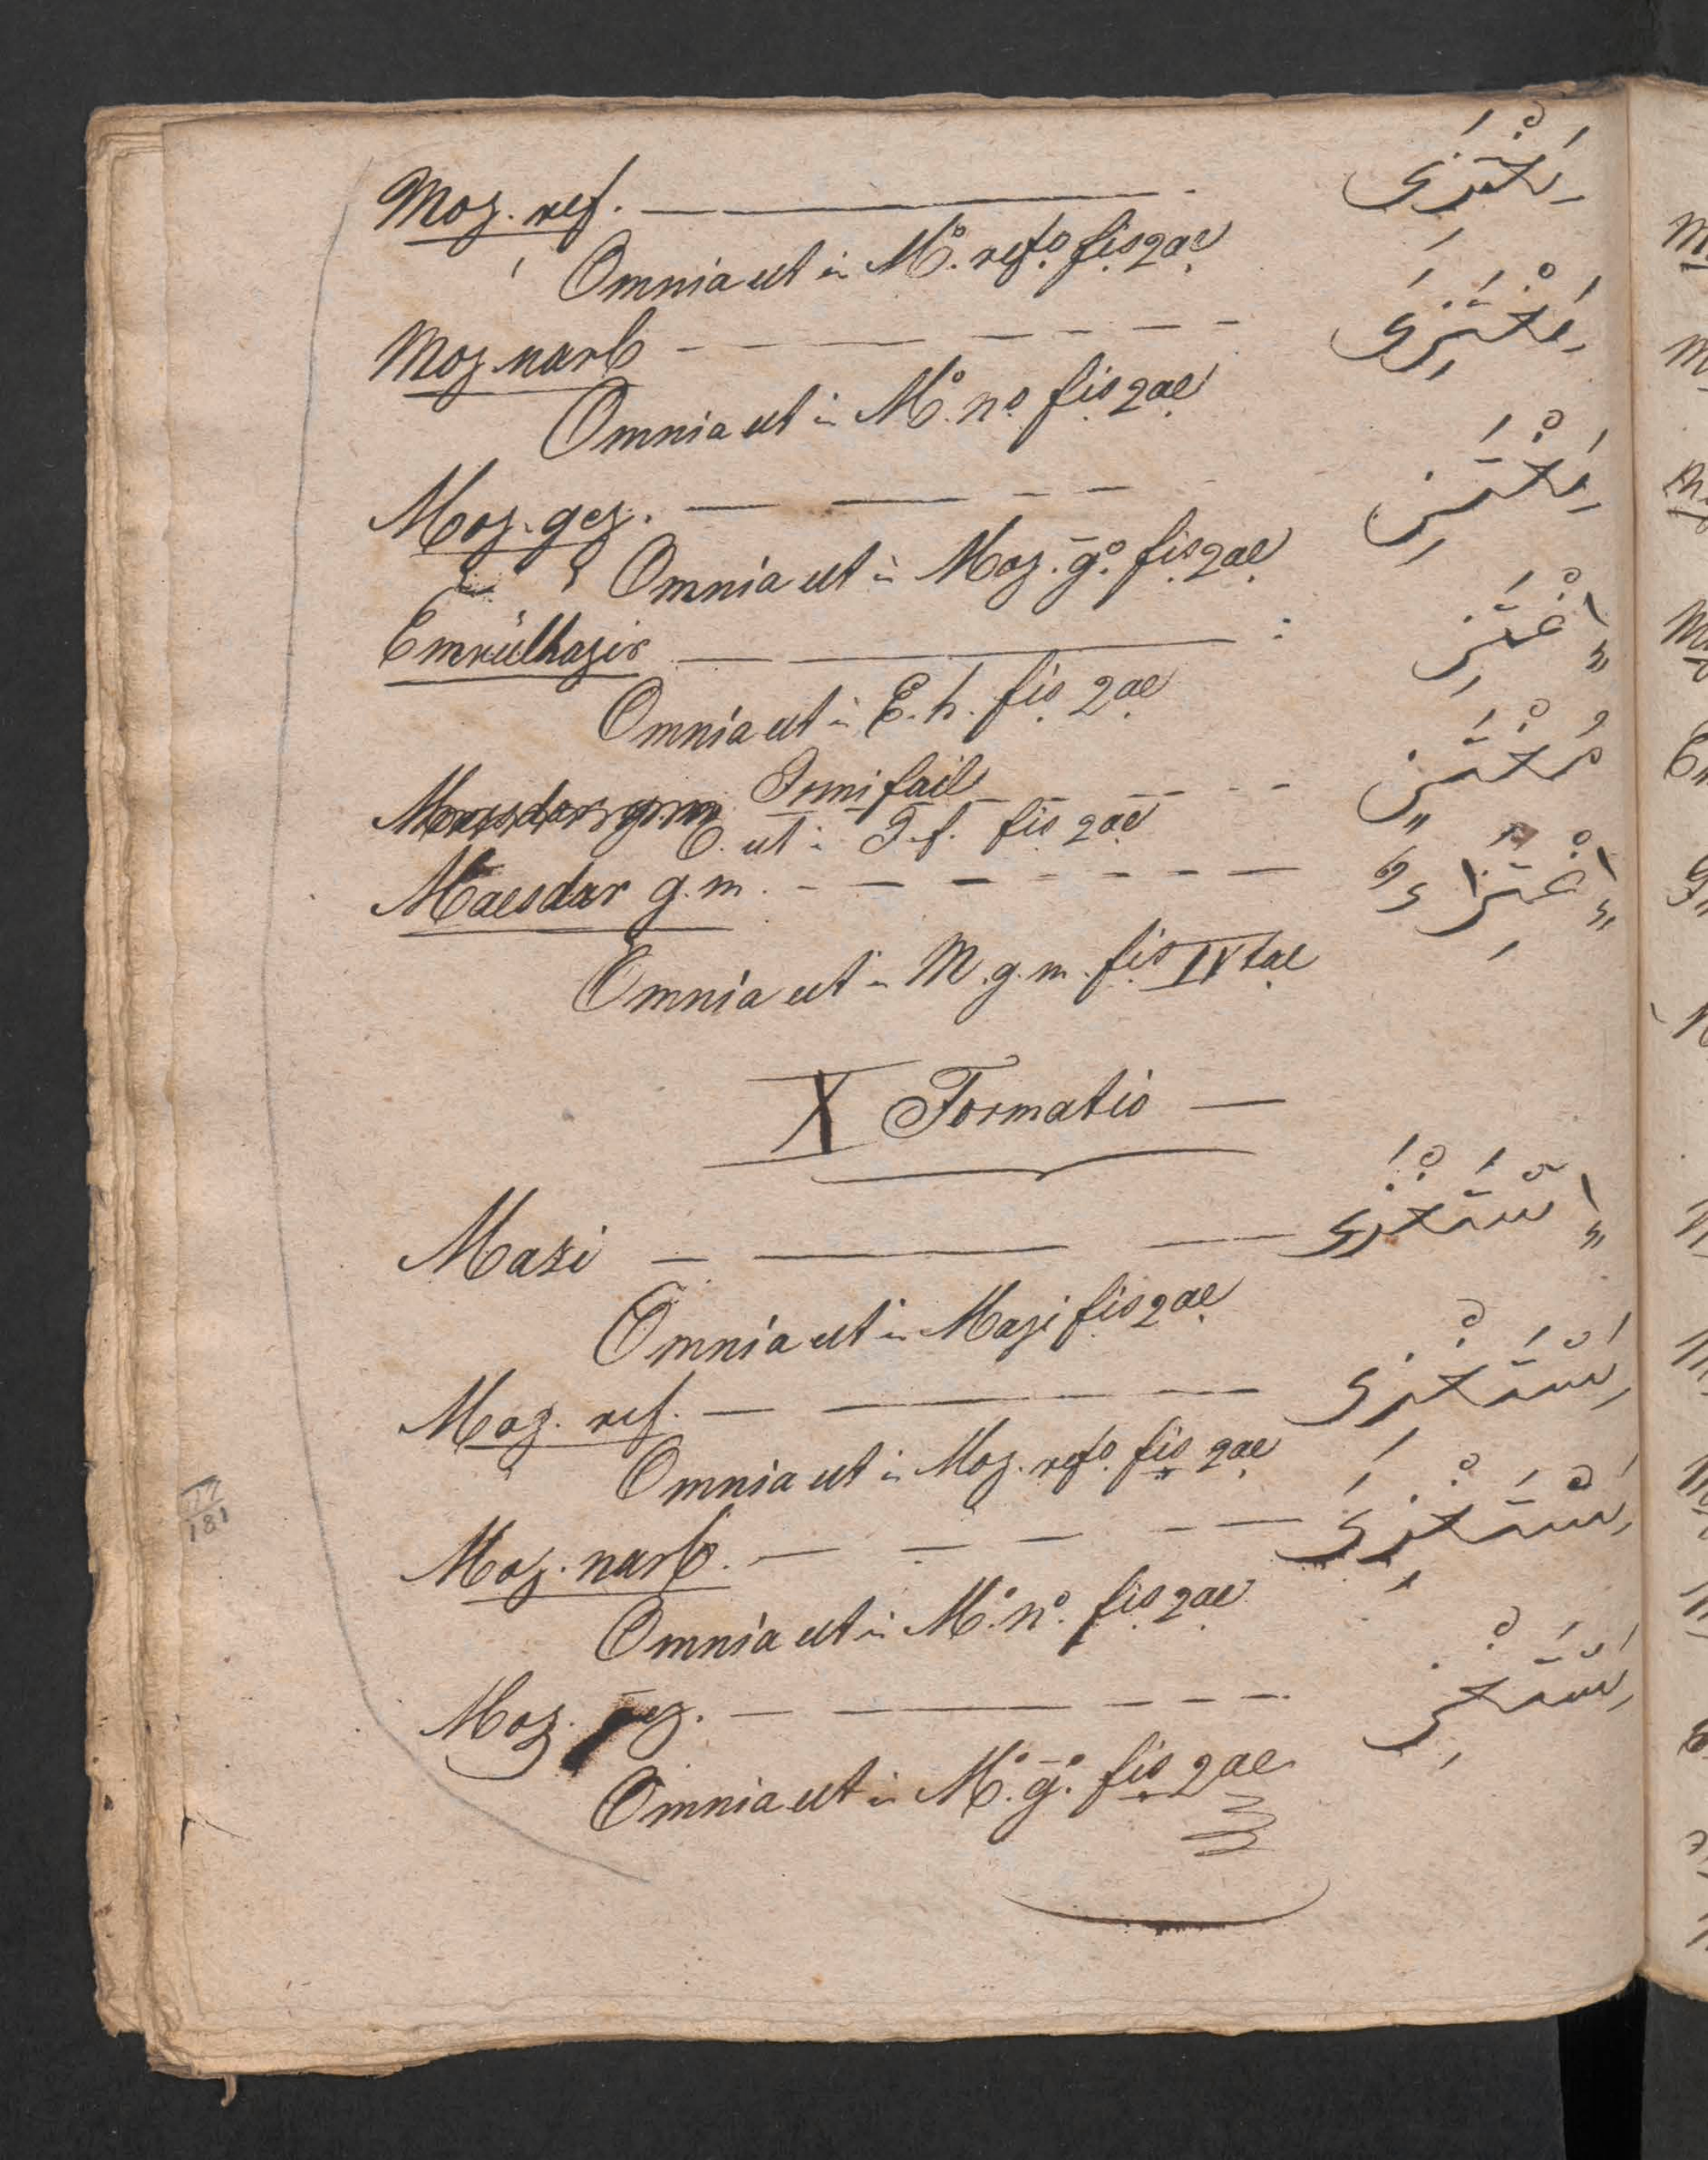 Moz. ref. — يَغْتَزِى
Omnia ut in Mo. refo. fis 2ae
Moz narb — — — — يَغْتَزِىَ
Omnia ut in Mo. no. fis 2ae
Moz. gez. — — — — يَغْتَزِ
Omnia ut in Moz. go. fis 2ae
Emrülhazir — : اِغْتَزِ
Omnia ut in E. h. fis 2ae
Ismifail — — — — مُغْتَزٍ
O. ut in I. f. fis 2ae
Maesdar g. m. — — — — اِغْتِزَاءٌ
Omnia ut in M. g. m. fis IVtae
X Formatio —
Mazi — — — اِسْتَغْزَى
Omnia ut in Mazi fis 2ae
Moz. ref. — — — يَسْتَغْزِى
Omnia ut in Moz. refo. fis 2ae
Moz. narb. — — — — يَسْتَغْزِىَ
Omnia ut in Mo. no. fis 2ae
Moz. gez. — — — — يَسْتَغْزِ
Omnia ut in Mo. go. fis 2ae
181